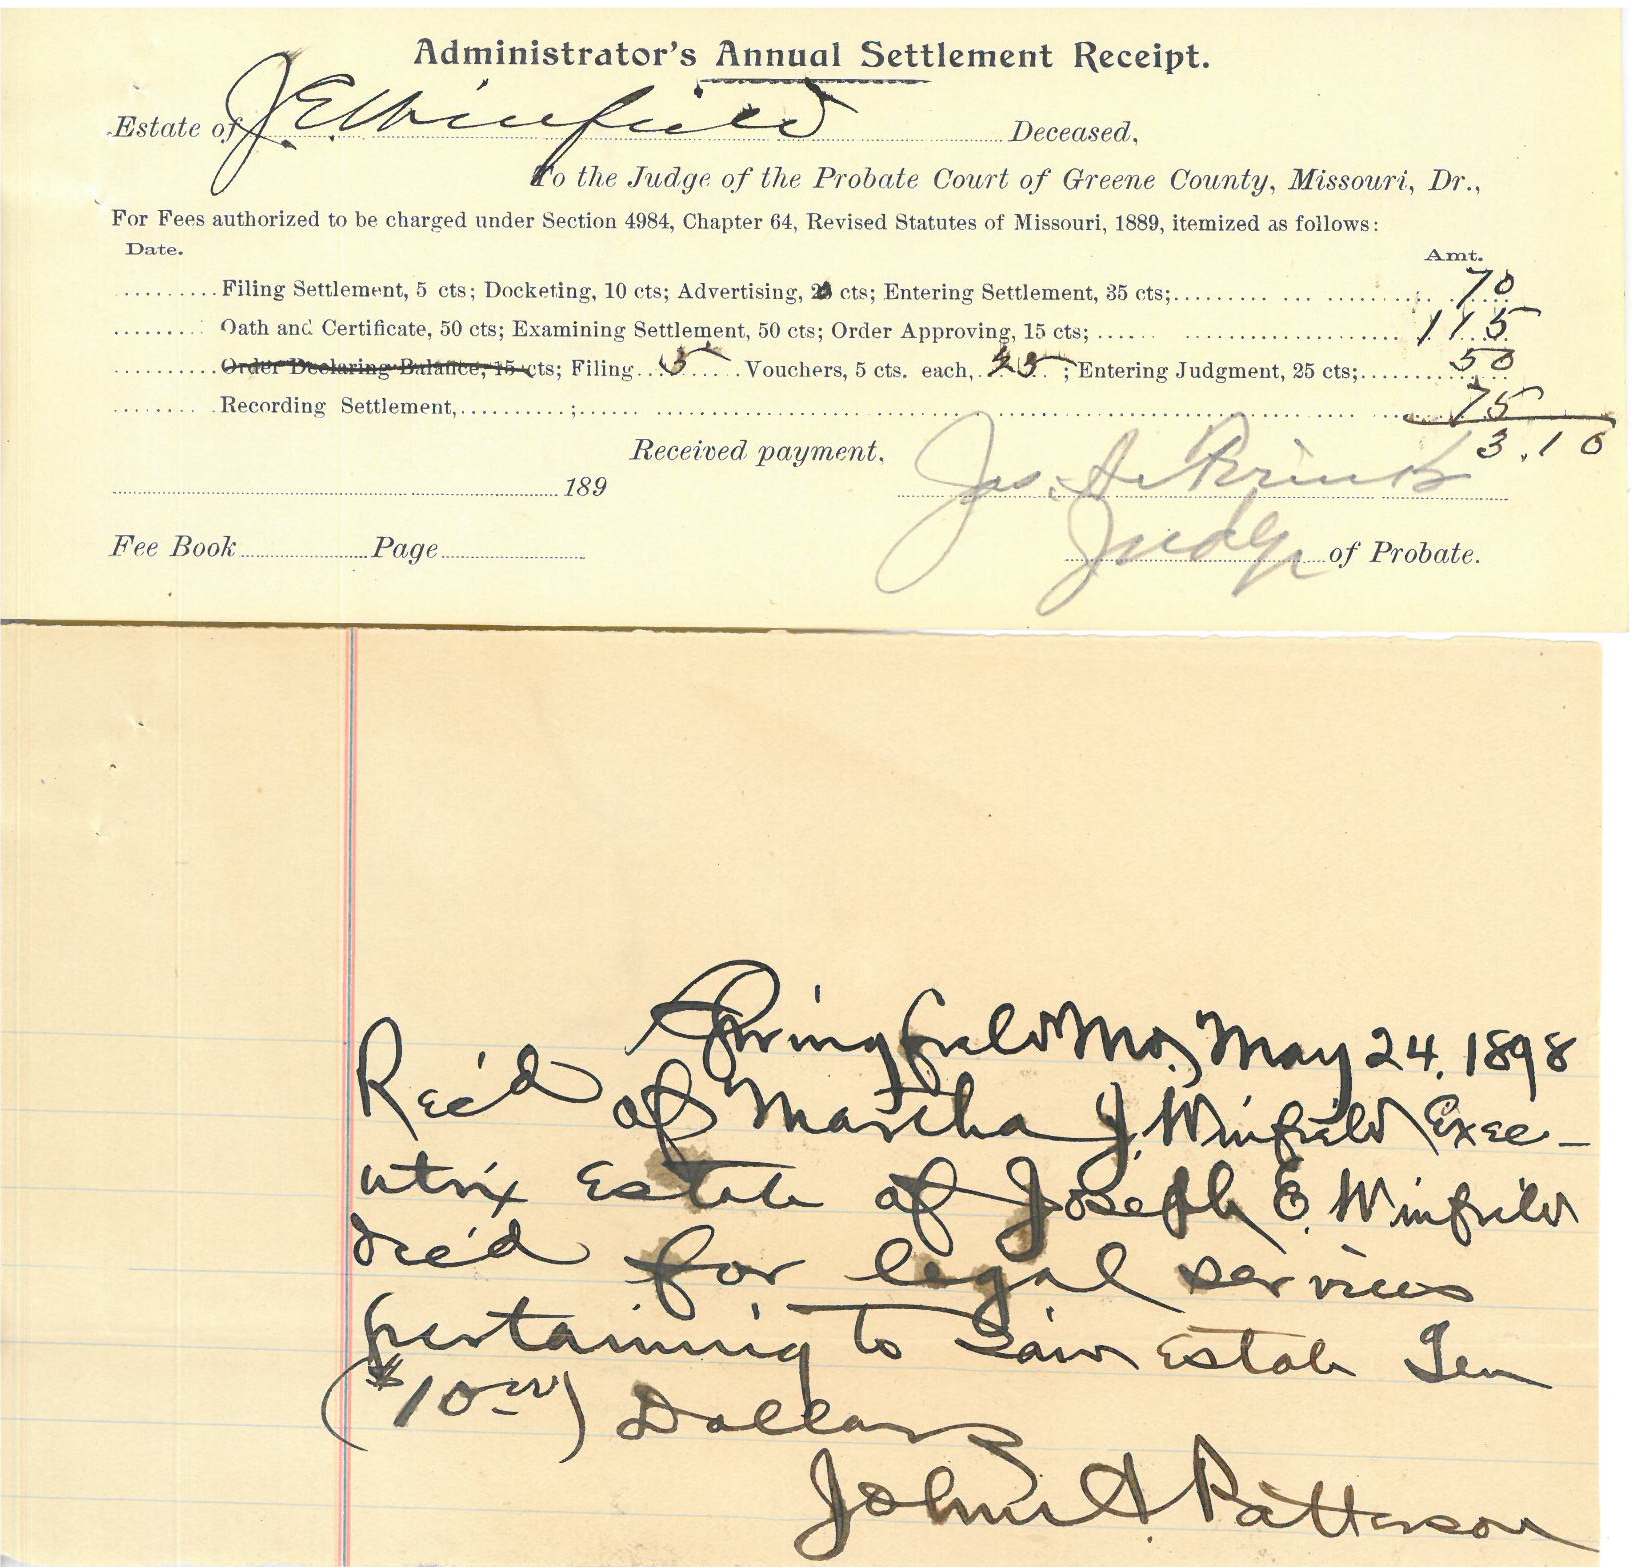 Administrator's Annual Settlement Receipt.
Estate of J E Winfield Deceased,
To the Judge of the Probate Court of Greene County, Missouri, Dr.,
For Fees authorized to be charged under Section 4984, Chapter 64, Revised Statutes of Missouri, 1889, itemized as follows:
Date. Amt.
Filing Settlement, 5 cts; Docketing, 10 cts; Advertising, cts; Entering Settlement, 35 cts; 70
Oath and Certificate, 50 cts; Examining Settlement, 50 cts; Order Approving, 15 cts; 115
Order Declaring Balance, 15 cts; Filing 5 Vouchers, 5 cts. each, 25; Entering Judgment, 25 cts; 50
Recording Settlement, 75
3.10
Received payment, Jas. A
189
Fee Book Page Judge of Probate.
Springfield Mo, May 24. 1898
Rec'd of Martha J. Winfield Exec-
utrix Estate of Joseph E. Winfield
dec'd for legal services
pertaining to Said Estate Ten
($10 00) Dollars
John A. Patterson